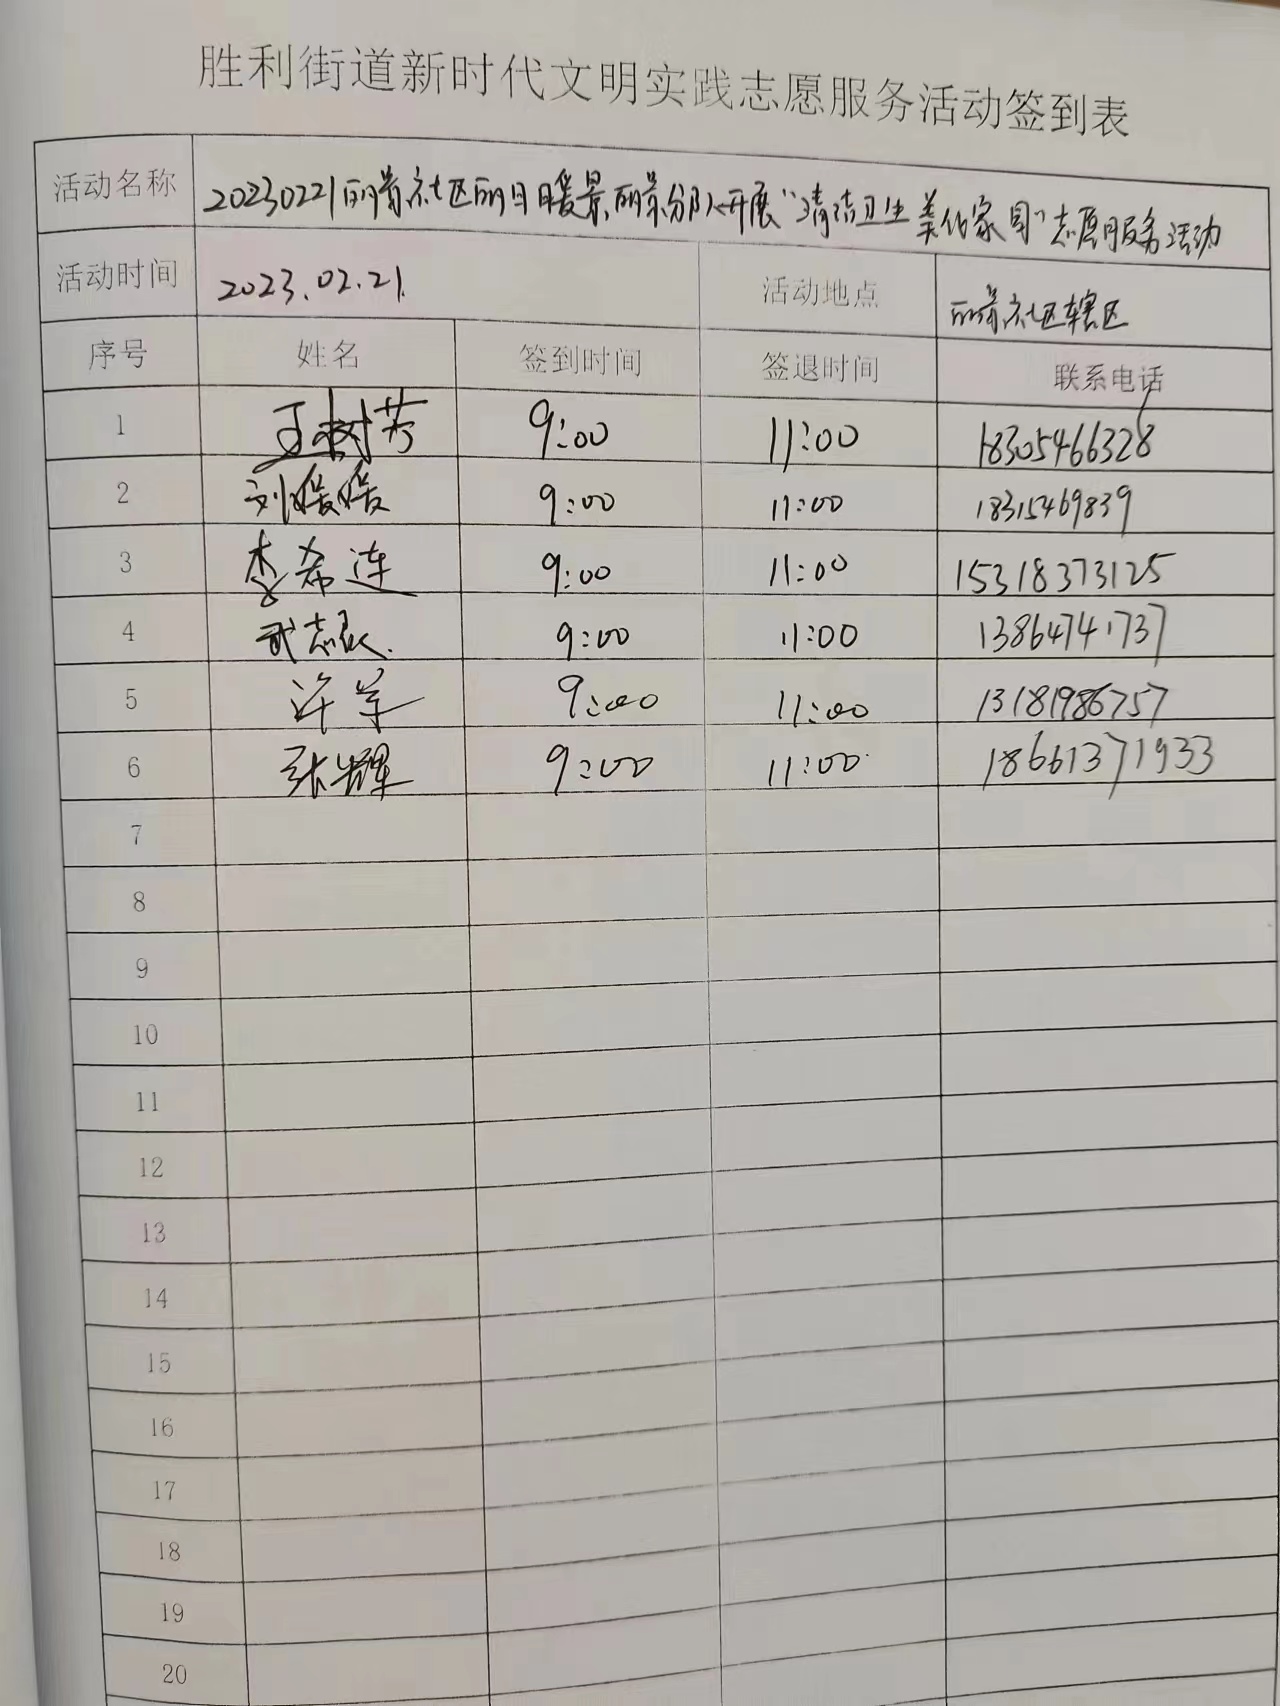 胜利街道新时代文明实践志愿服务活动签到表
活动名称 20230221丽景社区丽日暖景丽景分队开展“清洁卫生 美化家园”志愿服务活动
活动时间 2023.02.21. 活动地点 丽景社区辖区
序号 姓名 签到时间 签退时间 联系电话
1 王树芳 9:00 11:00 18305466328
2 刘媛媛 9:00 11:00 18315469839
3 李希连 9:00 11:00 15318373125
4 武志 9:00 11:00 13864741737
5 许军 9:00 11:00 13181986757
6 张辉 9:00 11:00 18661371933
7
8
9
10
11
12
13
14
15
16
17
18
19
20